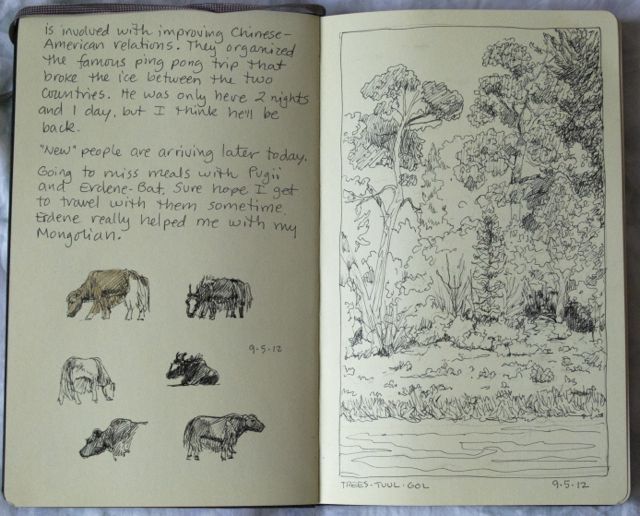 is involved with improving Chinese-
American relations. They organized
the famous ping pong trip that
broke the ice between the two
countries. He was only here 2 nights
and 1 day, but I think he'll be
back.
"New" people are arriving later today.
Going to miss meals with Pugii
and Erdene-Bat. Sure hope I get
to travel with them sometime.
Erdene really helped me with my
Mongolian.
9-5-12
TREES·TUUL·GOL
9·5·12